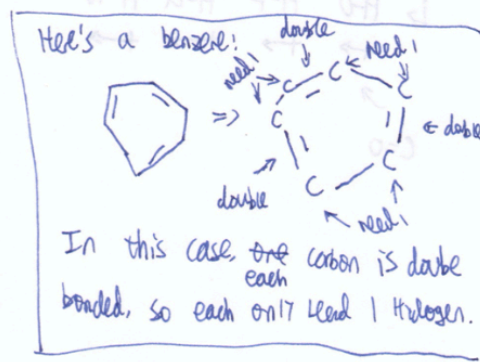 Here's a benzene!
double
need 1
need 1
=>
C
C
C
C
C
C
double
double
need 1
In this case, each carbon is double
bonded, so each only need 1 Hydrogen.